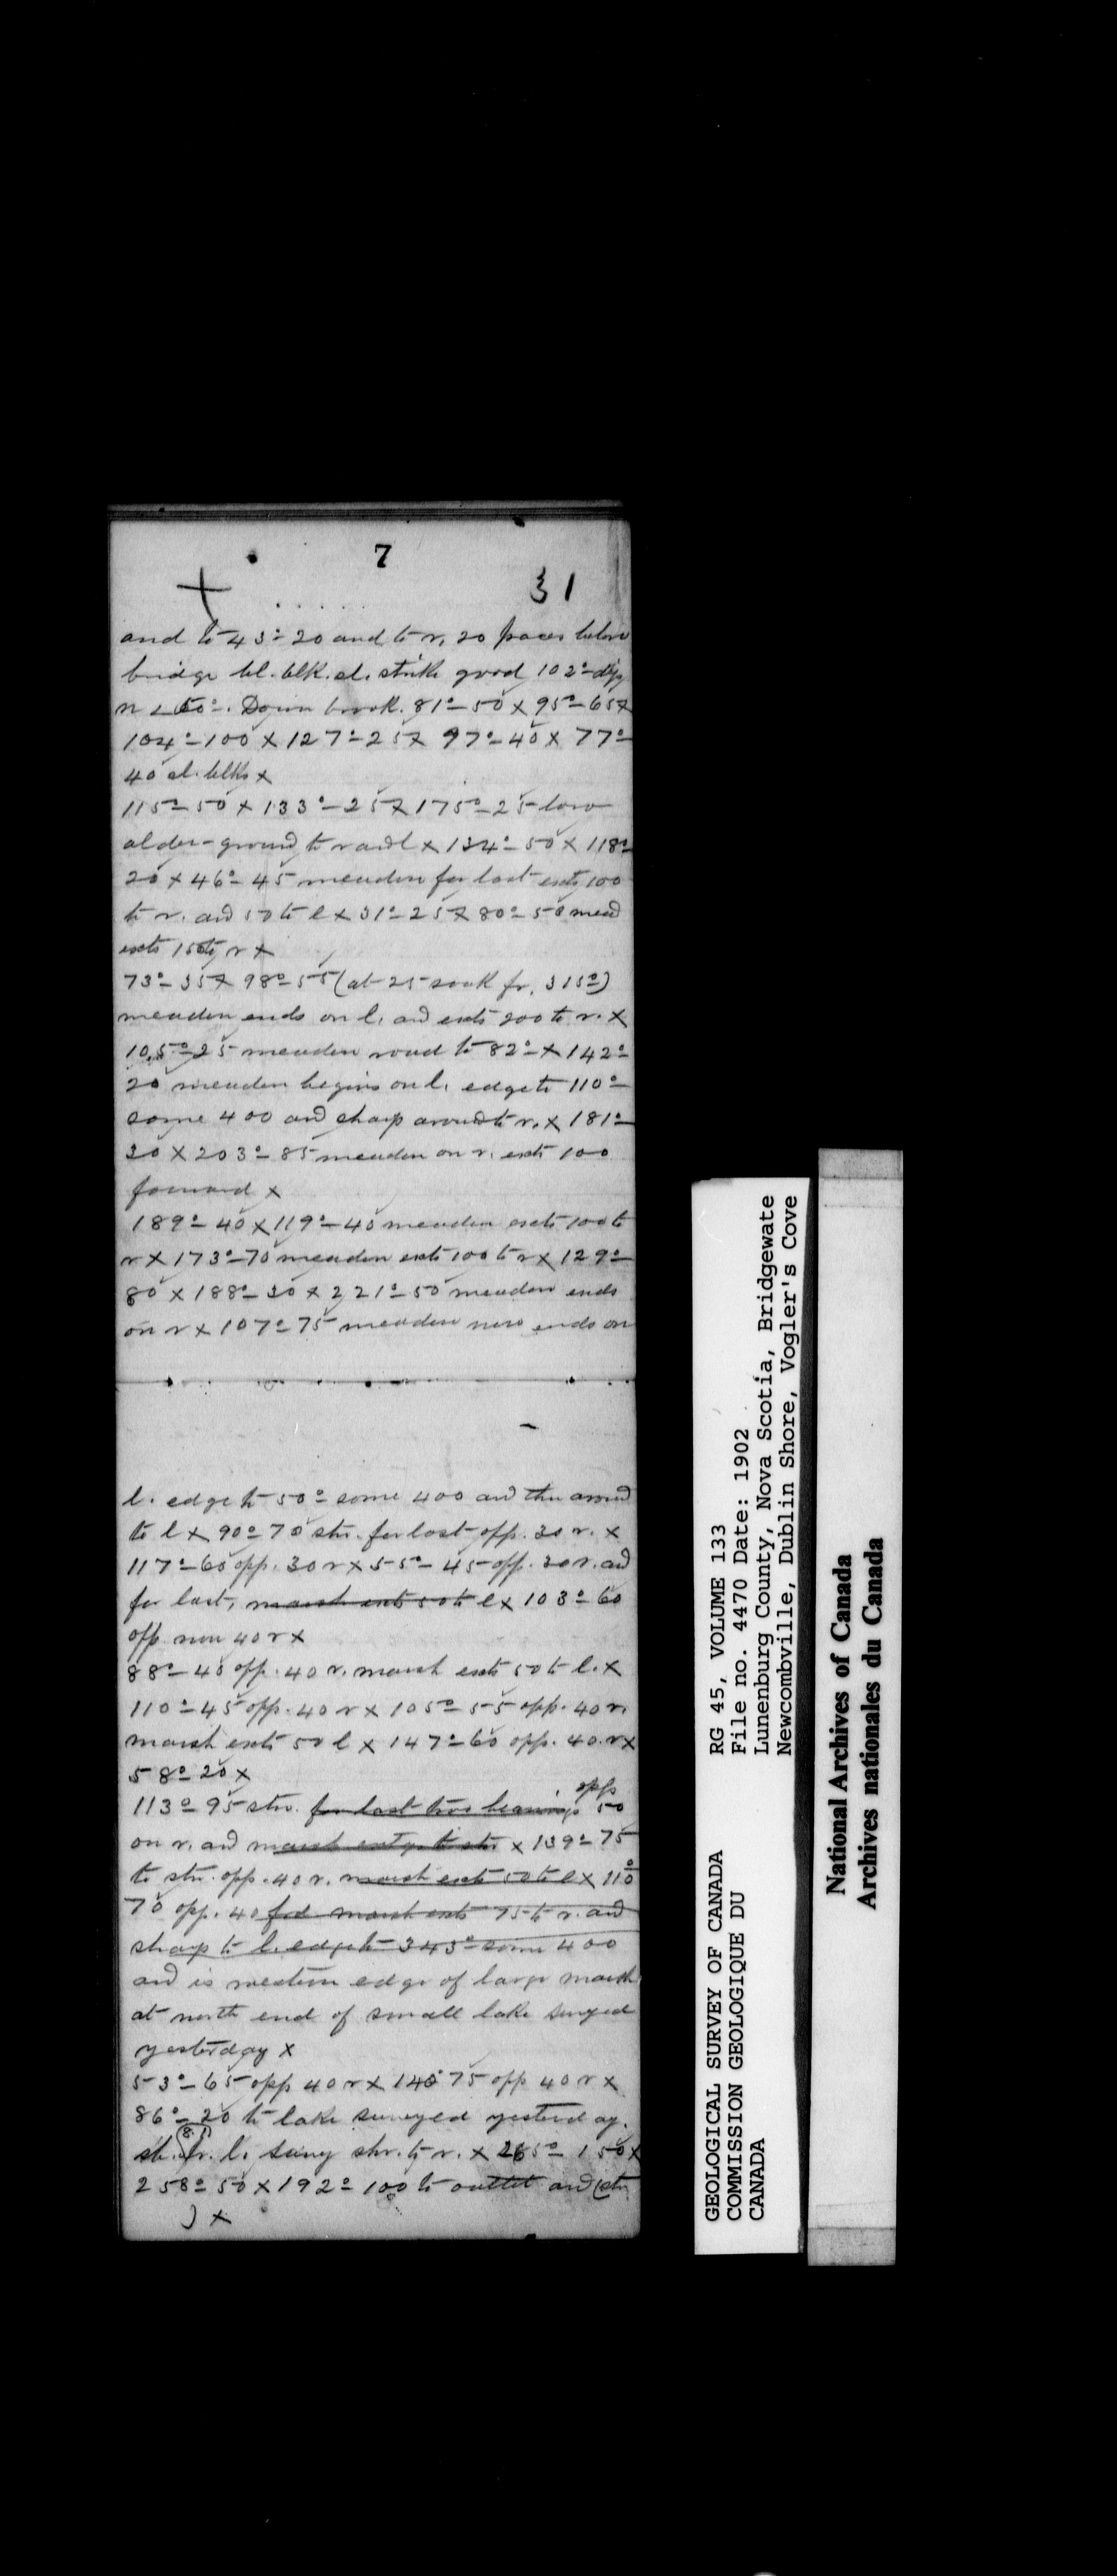 7
31
and to 43°-20 and to r. 20 paces below
bridge bl. blk. sl. strike good 102° dip
n ∠ 60°. Down brook. 81°-50 x 95°-65 x
104°-100 x 127°-25 x 97°-40 x 77°-
40 sl. blks x
115°-50 x 133°-25 x 175°-25 low
alder-ground to r and l x 134°-50 x 118°-
20 x 46°-45 meadow for last exts 100
to r. and 50 to l x 31°-25 x 80°-50 mead
exts 150 to r x
73°-35 x 98°-55 (at 25 fr. 315°)
meadow ends on l. and exts 200 to r. x
105°-25 meadow road to 82° x 142°-
20 meadow begins on l. edge to 110°-
some 400 and sharp around to r. x 181°-
30 x 203°-85 meadow on r. exts 100
forward x
189°-40 x 119°-40 meadow exts 100 to
r x 173°-70 meadow exts 100 to r x 129°-
80 x 188°-30 x 221°-50 meadow ends
on r x 107°-75 meadow now ends on
l. edge to 50° some 400 and then around
to l x 90°-70 str. for last opp. 30 r. x
117°-60 opp. 30 r x 55°-45 opp. 30 r. and
for last, marsh exts 50 to l x 103°-60
opp. now 40 r x
88°-40 opp. 40 r. marsh exts 50 to l. x
110°-45 opp. 40 r x 105°-55 opp. 40 r.
marsh exts 50 l x 147°-60 opp. 40 r x
58°-20 x
113°-95 str. for last two bearings opp 50
on r. and marsh exts to str x 139°-75
to str. opp. 40 r. marsh exts 50 to l x 110°
70 opp. 40 marsh exts 75 to r. and
sharp to l. edge to 343° some 400
and is western edge of large marsh
at north end of small lake surveyed
yesterday x
53°-65 opp 40 r x 140° 75 opp 40 r x
86°-20 to lake surveyed yesterday.
(81)
st. fr. l. shr. to r. x 265°-150 x
258°-50 x 192°-100 to outlet and (str
) x
GEOLOGICAL SURVEY OF CANADA
COMMISSION GEOLOGIQUE DU
CANADA
RG 45, VOLUME 133
File no. 4470 Date: 1902
Lunenburg County, Nova Scotia, Bridgewate
Newcombville, Dublin Shore, Vogler's Cove
National Archives of Canada
Archives nationales du Canada